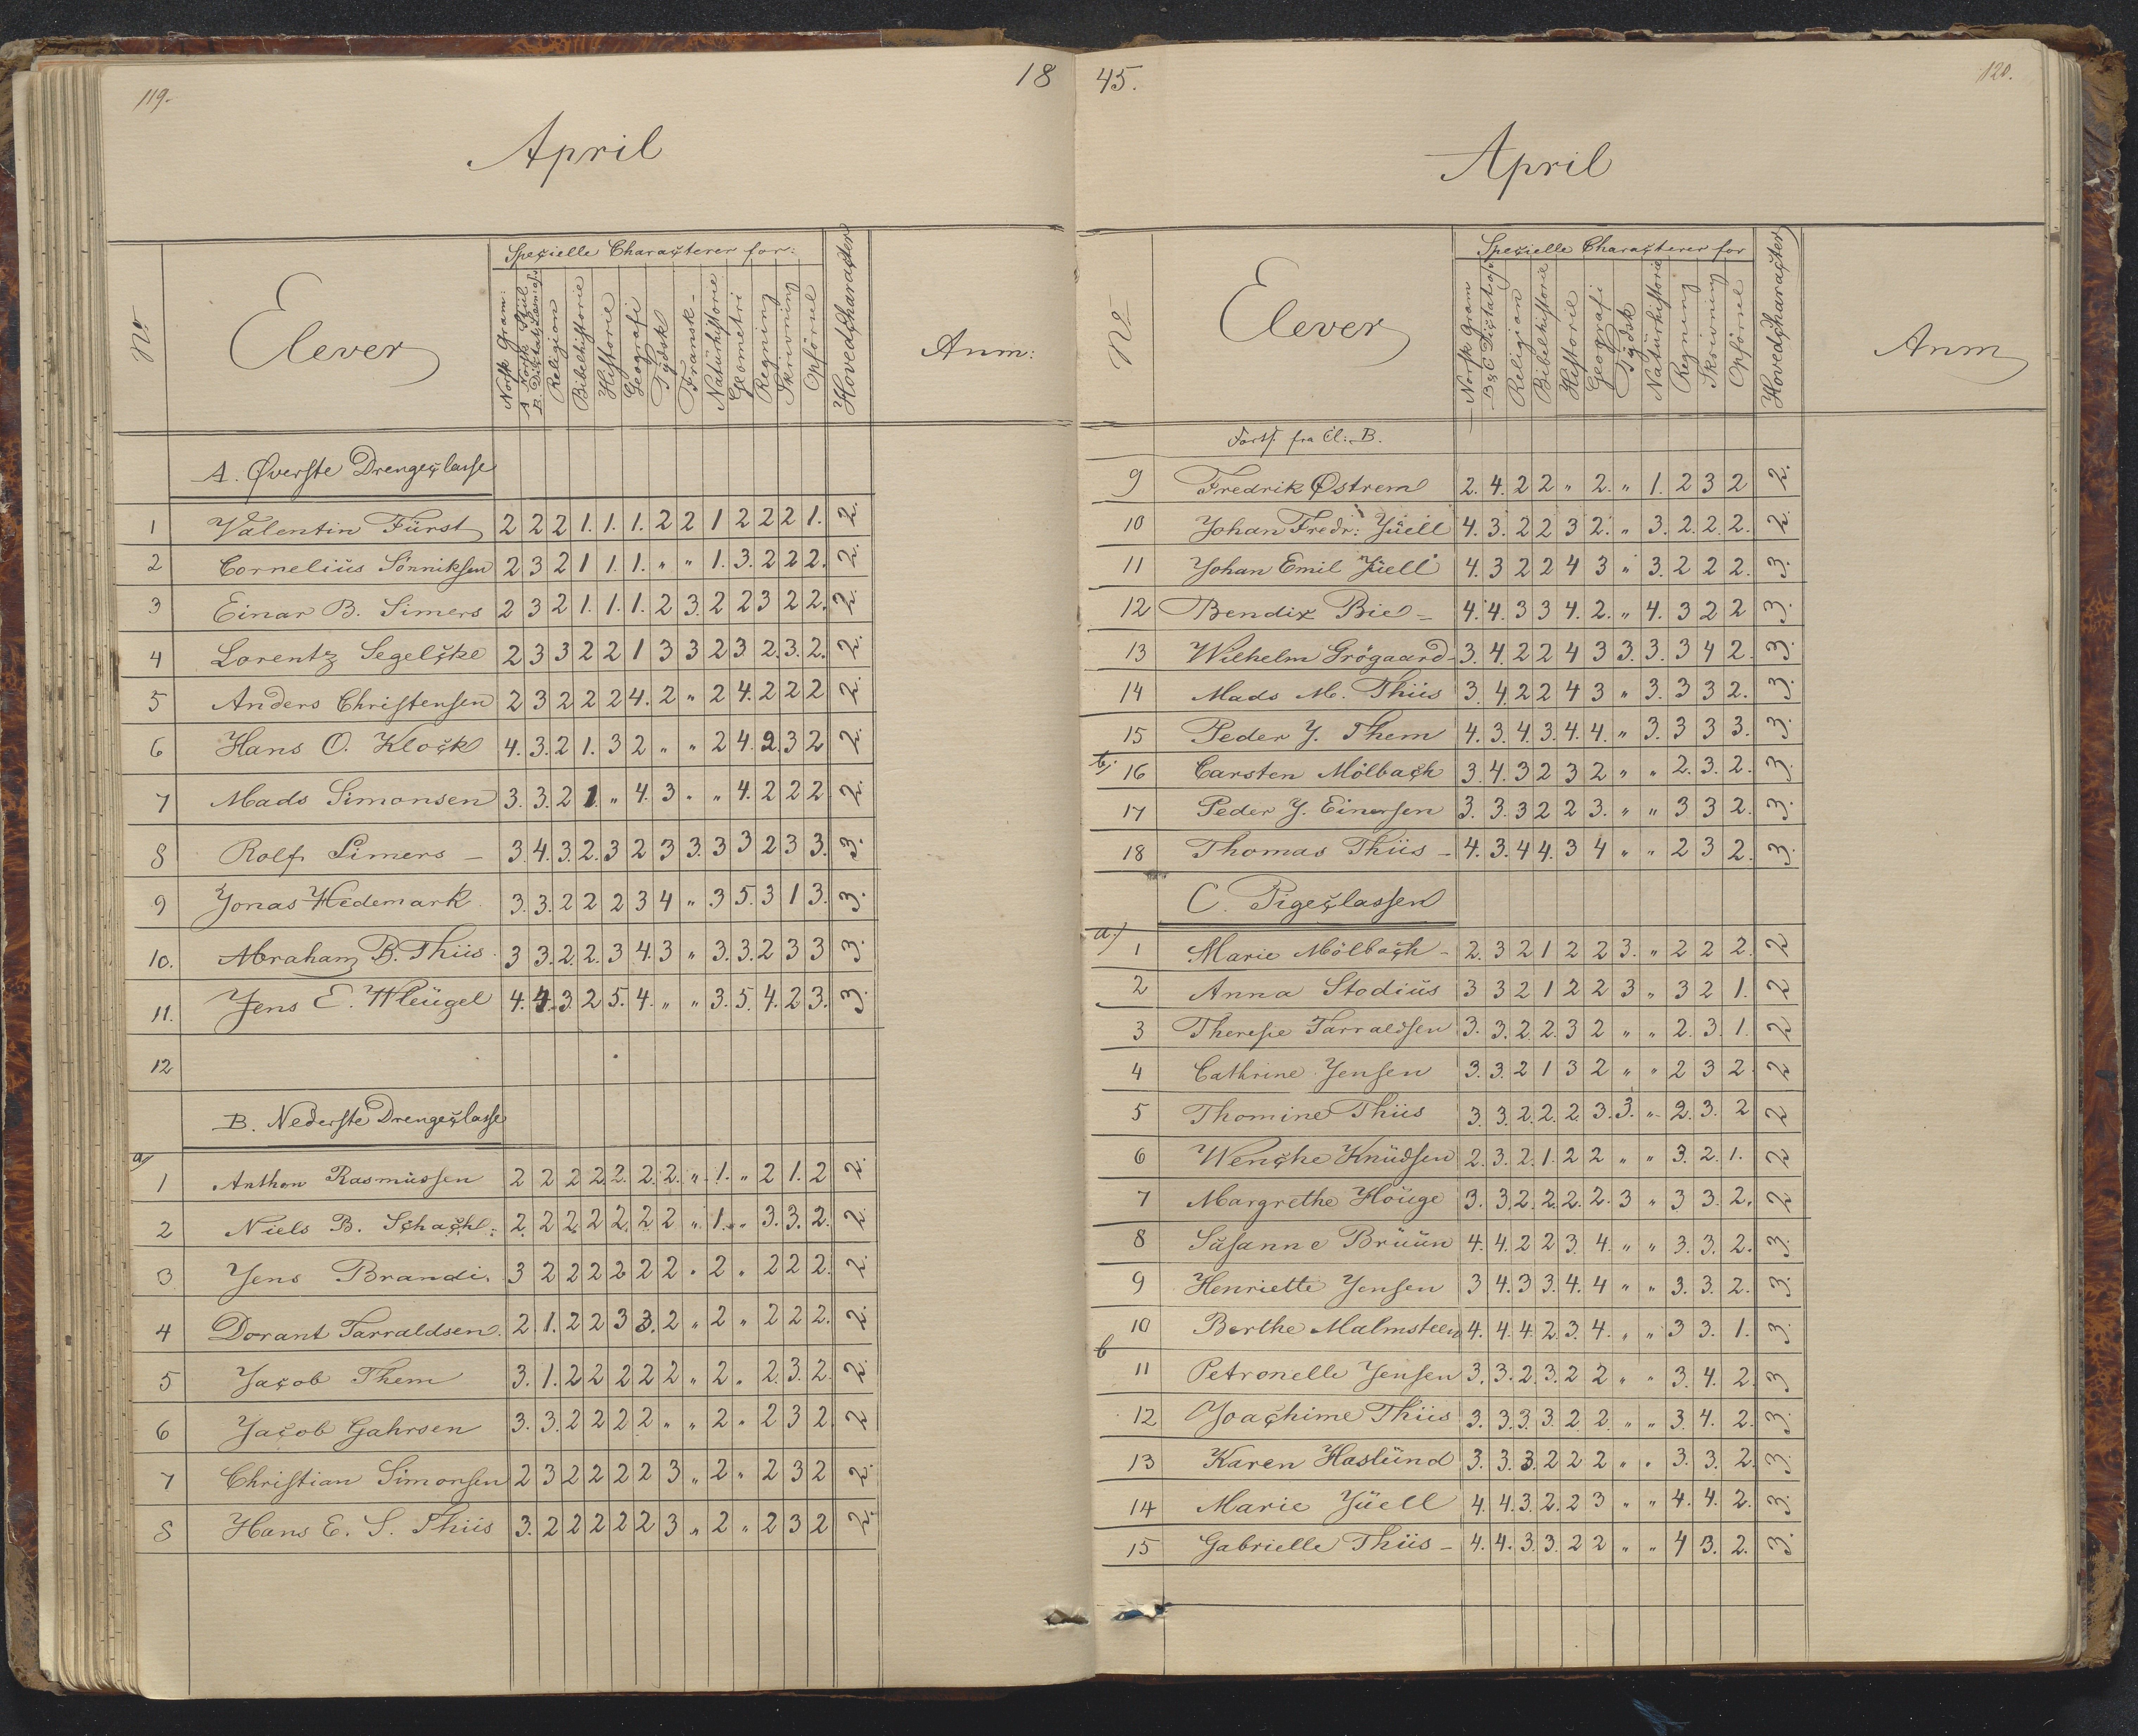 119.
18
April
No
Elever
Specielle Characterer for:
Norsk Gram:
A. Norsk Stiil
B. Dictat. Læsning
Religion
Bibelhistorie
Historie
Geografi
Tydsk
Fransk
Naturhistorie
Geometri
Regning
Skrivning
Opførsel
Hovedcharacter
Anm:
A. Øverste Drengeclasse
1 Valentin Fürst 2 2 2 1. 1. 1. 2 2 1 2 2 2 1. 2.
2 Cornelius Sönniksen 2 3 2 1 1. 1. " " 1. 3. 2 2 2. 2.
3 Einar B. Simers 2 3 2 1. 1. 1. 2 3. 2 2 3 2 2. 2.
4 Lorentz Segelcke 2 3 3 2 2 1 3 3 2 3 2. 3. 2. 2.
5 Anders Christensen 2 3 2 2 2 4. 2 " 2 4. 2 2 2 2.
6 Hans O. Klock 4. 3. 2 1. 3 2 " " 2 4. 2 3 2 2.
7 Mads Simonsen 3. 3. 2 1. " 4. 3 " " 4. 2 2 2 2.
8 Rolf Simers – 3. 4. 3. 2. 3 2 3 3. 3 3 2 3 3. 3.
9 Jonas Hedemark. 3. 3. 2 2 2 3 4 " 3 5. 3 1 3. 3.
10. Abraham B. Thiis. 3 3. 2. 2. 3 4. 3 " 3. 3. 2 3 3 3.
11. Jens E. Fleügel 4. 4. 3 2 5. 4. " " 3. 5. 4. 2 3. 3.
12
B. Nederste Drengeclasse
a/
1 Anthon Rasmussen 2 2 2 2 2. 2. 2. " 1. " 2 1. 2 2.
2 Niels B. Schacht: 2. 2 2 2 2. 2 2 " 1. " 3. 3. 2. 2.
3 Jens Brandi. 3 2 2 2 2 2 2 " 2 " 2 2 2. 2.
4 Dorant Tarraldsen. 2. 1. 2 2 3 3. 2 " 2 " 2 2 2. 2.
5 Jacob Them 3. 1. 2 2 2 2 2 " 2 " 2. 3. 2. 2.
6 Jacob Gahrsen 3. 3. 2 2 2 2 " " 2 " 2 3 2. 2
7 Christian Simonsen 2 3 2 2 2 2 3 " 2 " 2 3 2 2.
8 Hans E. S. Thiis 3. 2 2 2 2 2 3 " 2 " 2 3 2 2.
45.
120.
April
No
Elever
Specielle Characterer for
Norsk Gram
B & C Dictat
Religion
Bibelhistorie
Historie
Geografi
Tydsk
Naturhistorie
Regning
Skrivning
Opførsel
Hovedcharacter
Anm
Forts. fra Cl: B.
9 Fredrik Østrem 2. 4. 2 2 " 2. " 1. 2 3 2 2.
10 Johan Fredr: Jüell 4. 3. 2 2 3 2. " 3. 2. 2. 2. 2.
11 Johan Emil Jüell 4. 3 2 2 4 3 " 3. 2 2 2. 3.
12 Bendix Bie – 4. 4. 3 3 4. 2. " 4. 3 2 2 3.
13 Wilhelm Grögaard 3. 4. 2 2 4 3 3. 3. 3 4 2. 3.
14 Mads M. Thiis 3 4. 2 2 4 3 " 3. 3 3 2. 3.
15 Peder J. Them 4. 3. 4. 3. 4. 4. " 3. 3 3 3. 3.
b/
16 Carsten Mölbach 3. 4. 3 2 3 2 " " 2. 3. 2. 3.
17 Peder J. Einersen 3. 3. 3 2 2 3. " " 3 3 2. 3.
18 Thomas Thiis – 4. 3. 4 4. 3 4 " " 2 3 2. 3.
C. Pigeclassen
a/
1 Marie Mölbach – 2. 3 2 1 2 2 3. " 2 2 2. 2
2 Anna Stodiüs 3 3 2 1 2 2 3 " 3 2 1. 2
3 Therese Tarraldsen 3. 3. 2 2. 3 2 " " 2. 3. 1. 2
4 Cathrine Jensen 3. 3. 2 1 3 2 " " 2 3 2. 2
5 Thomine Thiis 3. 3. 2. 2. 2 3. 3. " 2. 3. 2 2
6 Wenche Knüdsen 2. 3. 2. 1. 2 2 " " 3. 2. 1. 2
7 Margrethe Höüge 3. 3. 2. 2. 2. 2. 3 " 3 3. 2. 2
8 Susanne Brüün 4. 4. 2 2 3. 4. " " 3. 3. 2. 3.
9 Henriette Jensen 3 4. 3 3. 4. 4 " " 3. 3. 2. 3.
10 Berthe Malmsteen 4. 4. 4. 2. 3. 4. " " 3 3. 1. 3.
b
11 Petronelle Jensen 3. 3. 2. 3. 2 2 " " 3. 4. 2. 3
12 Joachime Thiis 3. 3. 3. 3. 2 2. " " 3 4. 2. 3.
13 Karen Haslünd 3. 3. 3. 2 2 2 " " 3. 3. 2. 3.
14 Marie Jüell 4. 4. 3. 2. 2 3 " " 4. 4. 2. 3.
15 Gabrielle Thiis – 4. 4. 3. 3. 2 2 " " 4 3. 2. 3.